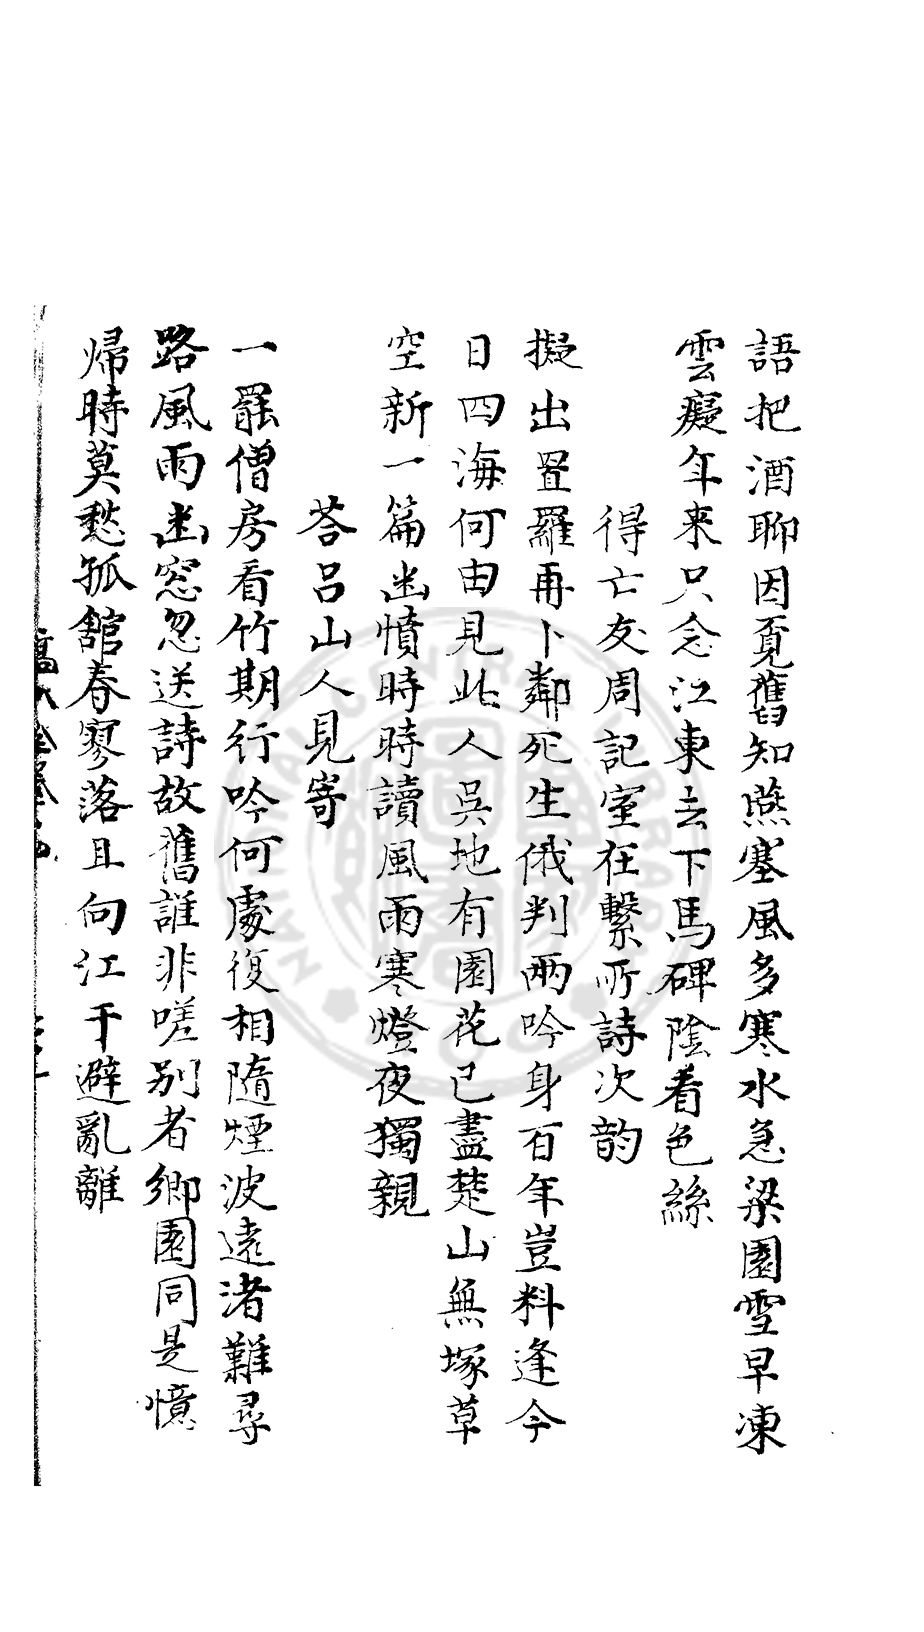 語把酒聊因覔舊知燕塞風多寒水急梁園雪早凍
雲癡年来只念江東去下馬碑陰看色絲
得亡友周記室在繫所詩次韵
擬出罝羅再卜鄰死生俄判兩吟身百年豈料逢今
日四海何由見此人吳地有園花已盡楚山無塚草
空新一篇幽憤時時讀風雨寒燈夜獨親
荅呂山人見寄
一罷僧房看竹期行吟何處復相隨煙波遠渚難尋
路風雨幽窓忽送詩故舊誰非嗟别者鄉園同是憶
帰時莫愁孤舘春寥落且向江干避亂離